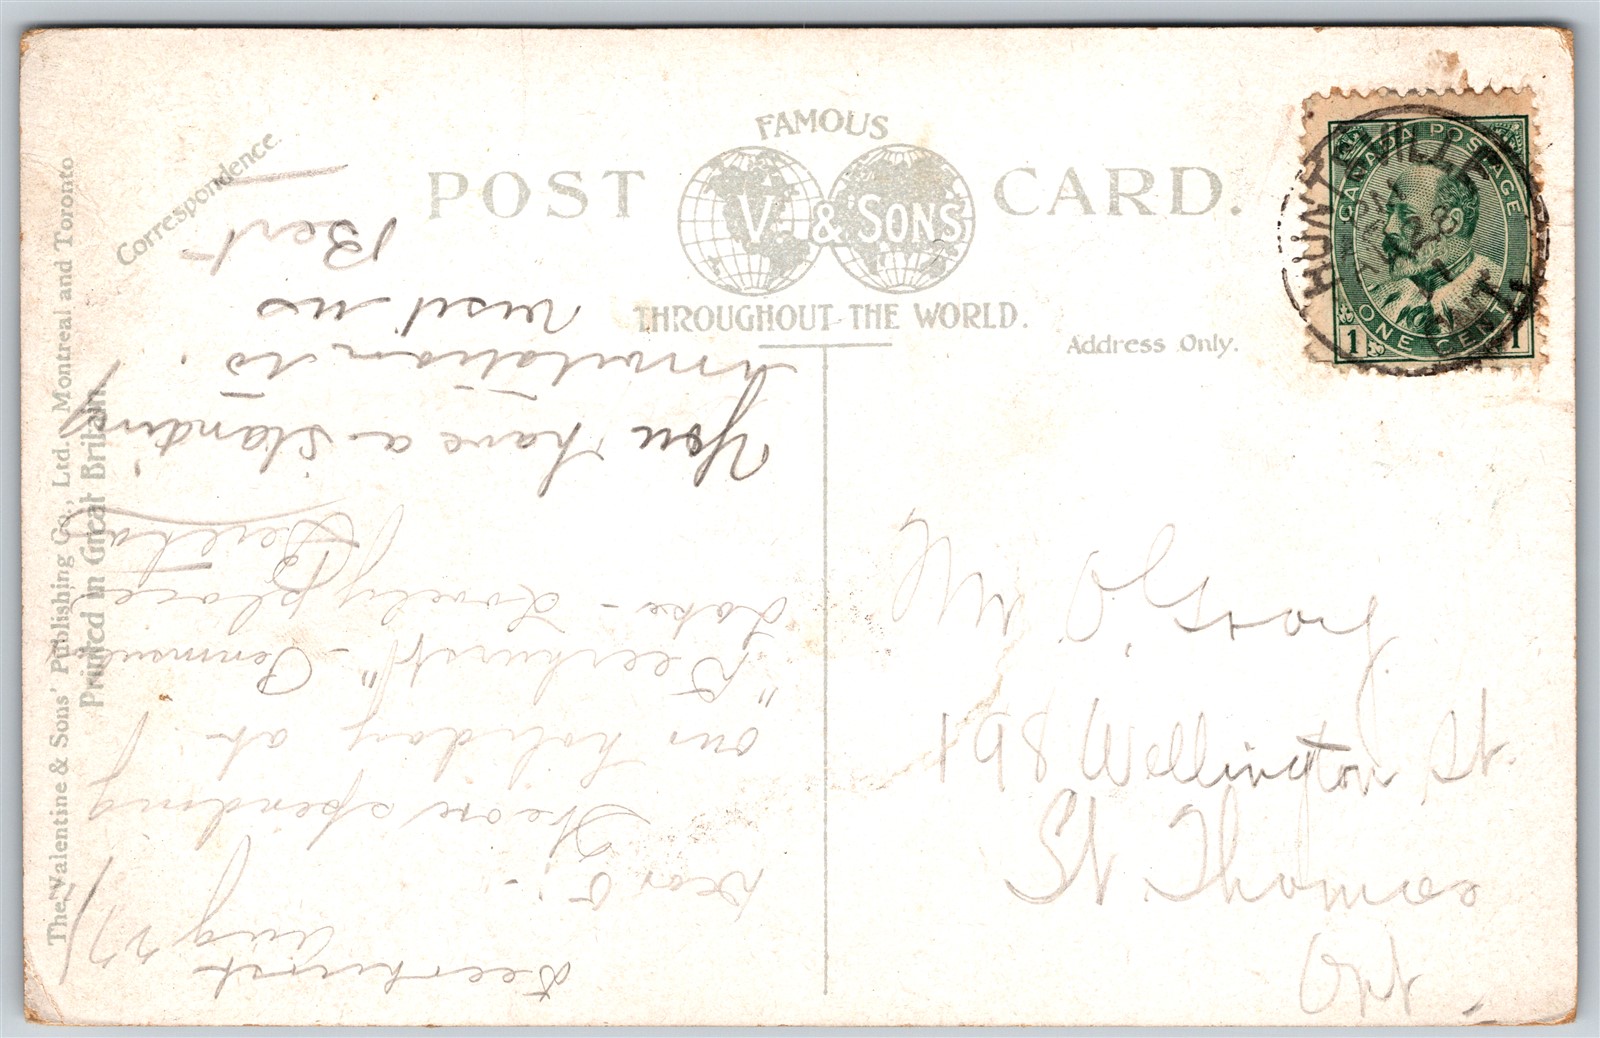 Correspondence.
FAMOUS
POST V. & SONS CARD.
THROUGHOUT THE WORLD.
Address Only.
CANADA POSTAGE
1 ONE CENT 1
HUNTSVILLE
28
ONT.
The Valentine & Sons' Publishing Co., Ltd. Montreal and Toronto
Printed in Great Britain.
Deerhurst
Aug 27/
Dear O:-
We are spending
our holiday at
"Deerhurst" - Penmsula
Lake - Lovely place
Bereta
You have a standing
invitation to
visit us
Bert
Mr O. Gray
198 Wellington St.
St. Thomas
Ont